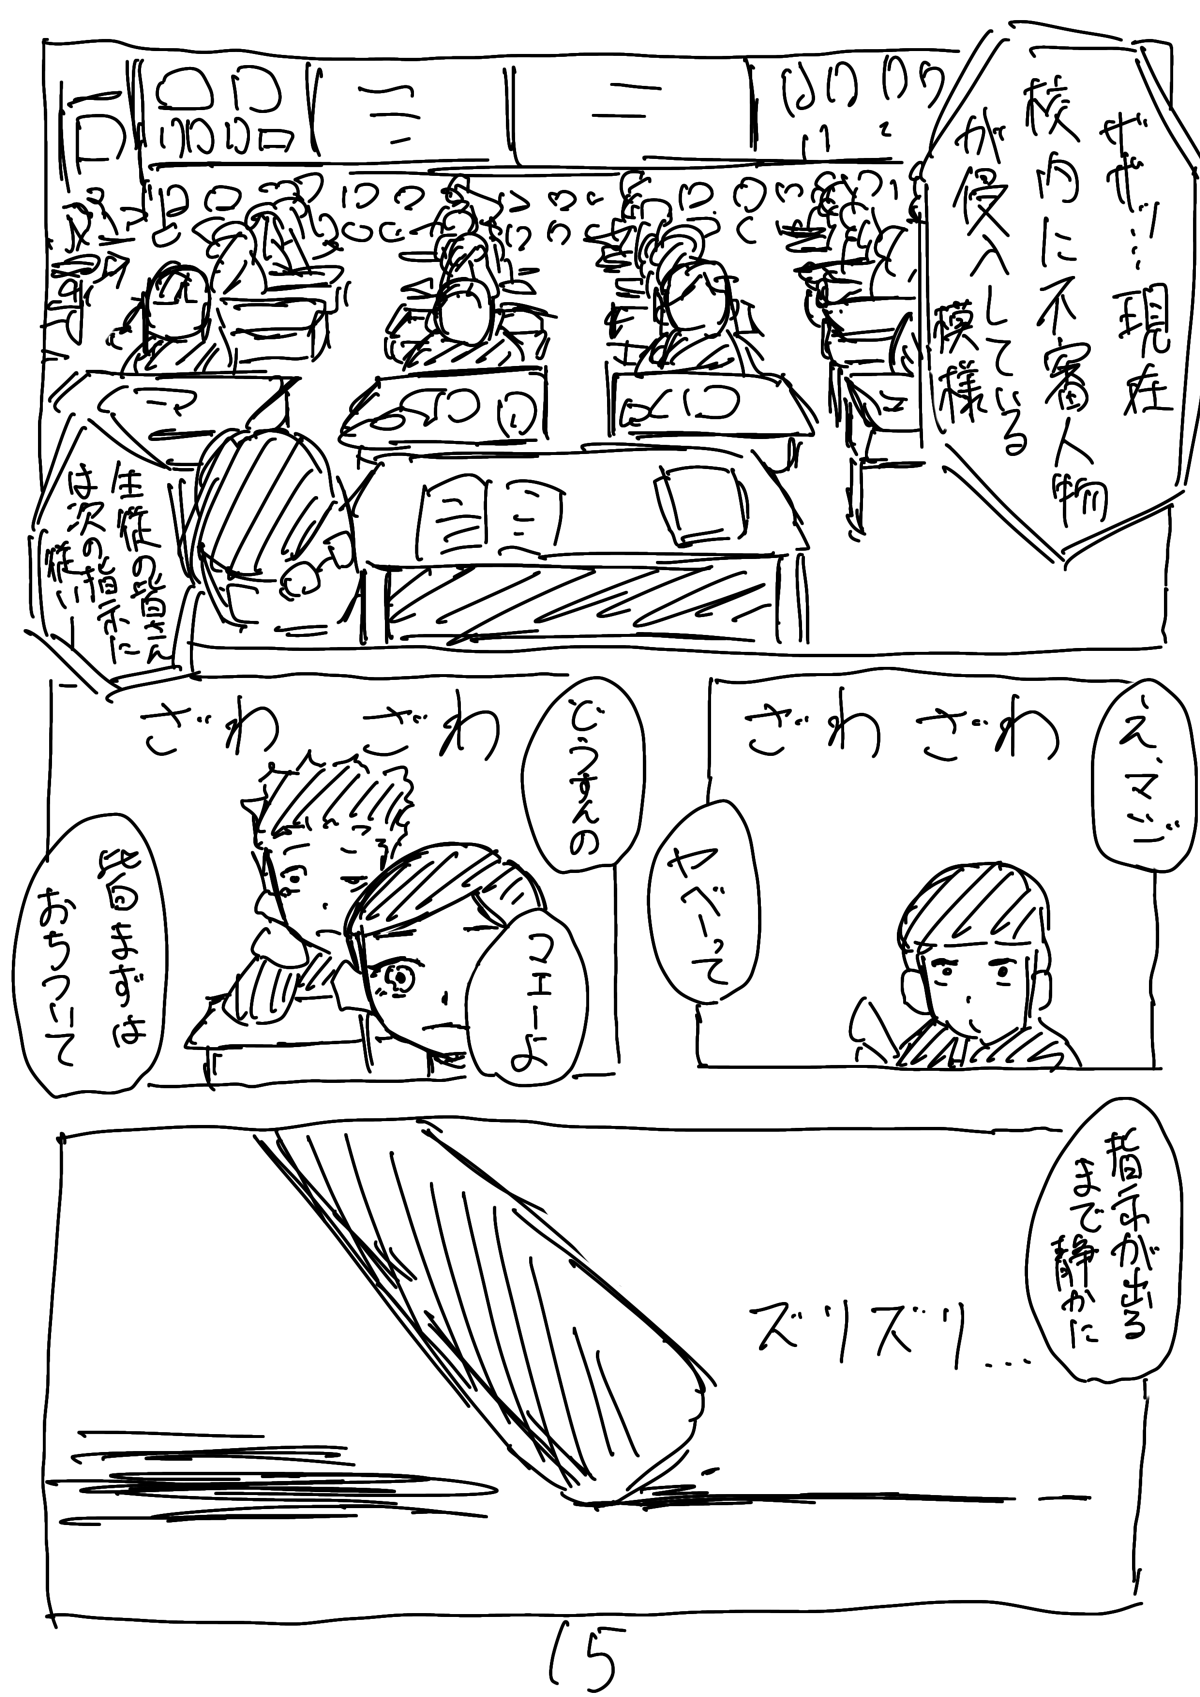 ザザッ…現在
校内に不審人物
が侵入している
模様
生徒の皆さん
は次の指示に
従い―
え、マジ
ざわ ざわ
ヤベーって
どうすんの
ざわ ざわ
マエーよ
皆まずは
おちついて
指示が出る
まで静かに
ズリズリ…
15